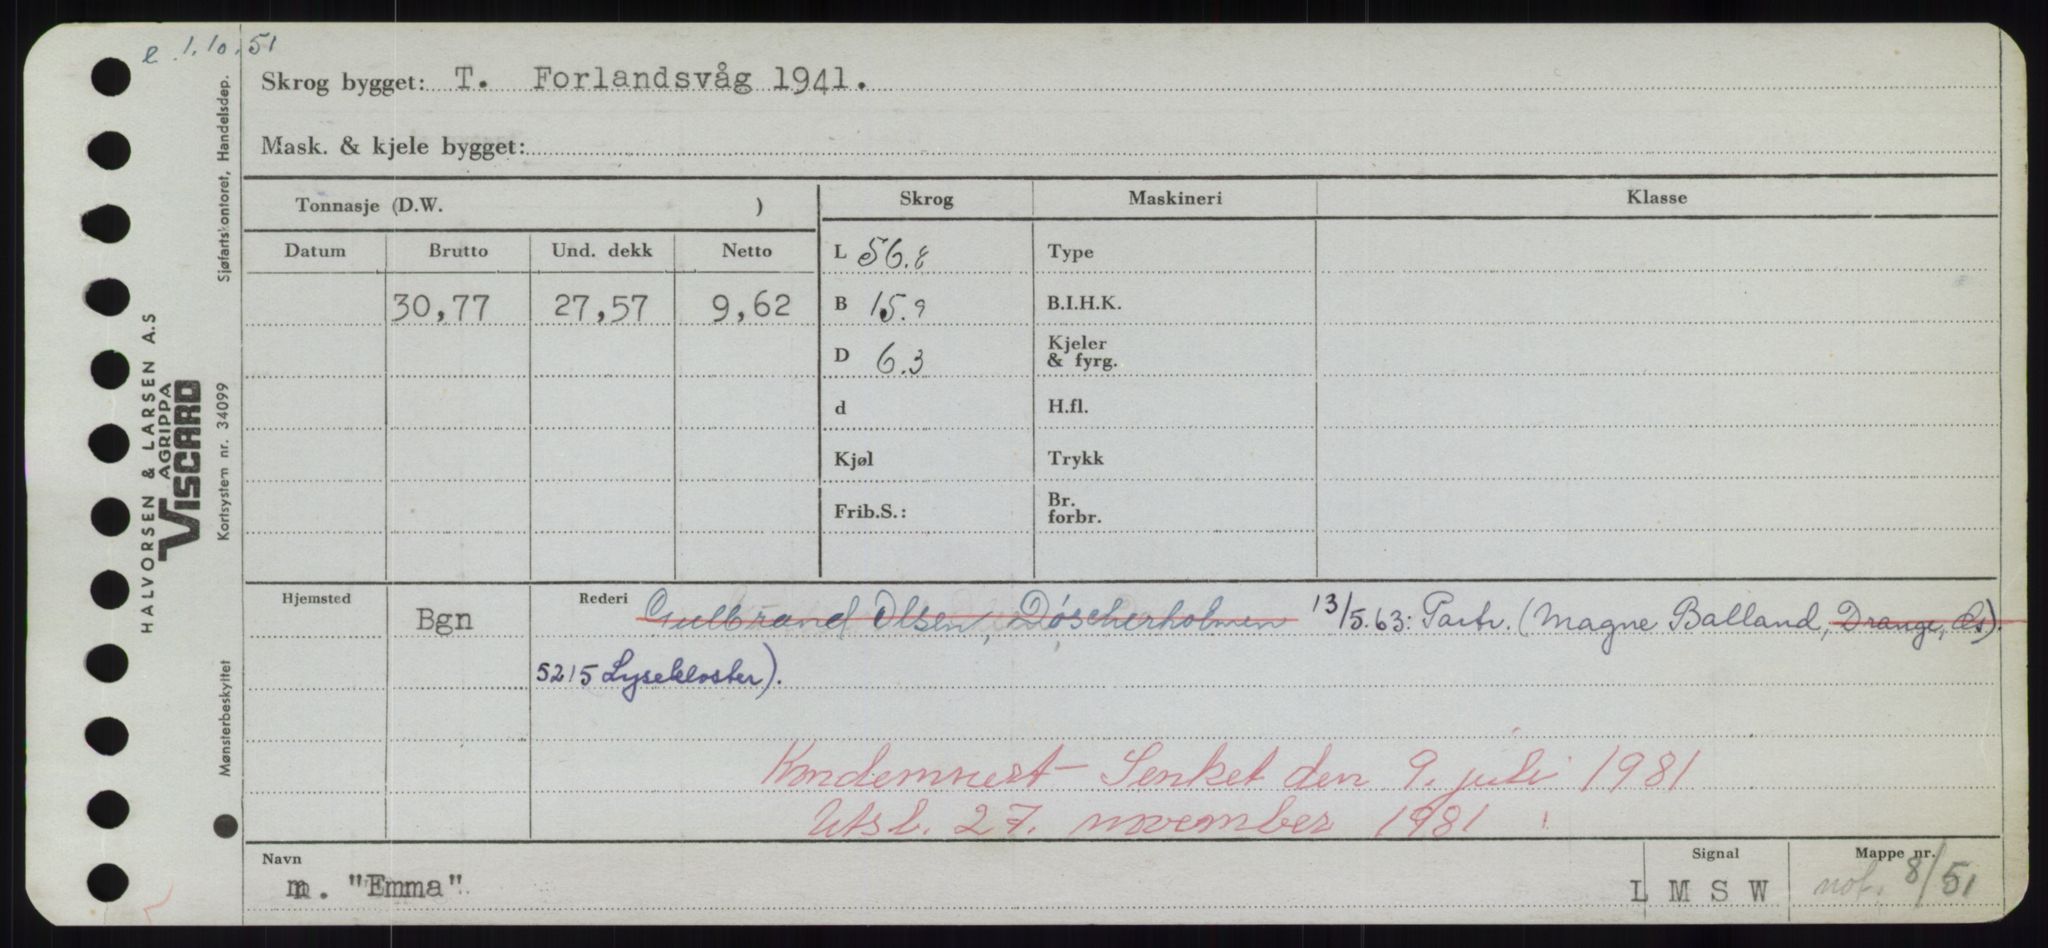 e 1.10.51
Skrog bygget: T. Forlandsvåg 1941.
Mask. & kjele bygget:
Tonnasje (D.W. )
Skrog Maskineri Klasse
Datum Brutto Und. dekk Netto
L 56.8 Type
30,77 27,57 9,62 B 15.9 B.I.H.K.
D 6.3 Kjeler
& fyrg.
d H.fl.
Kjøl Trykk
Frib.S.: Br.
forbr.
Hjemsted Bgn Rederi Gulbrand Olsen, Døscherholmen 13/5.63: Partr. (Magne Balland, Drange, Os).
5215 Lysekloster).
Kondemnert Senket den 9. juli 1981
Utsl. 27. november 1981
Navn Signal Mappe nr.
m. "Emma" L M S W not. 8/51
HALVORSEN & LARSEN A.S
AGRIPPA
VISCARD
Mønsterbeskyttet Kortsystem nr. 34099 Sjøfartskontoret, Handelsdep.